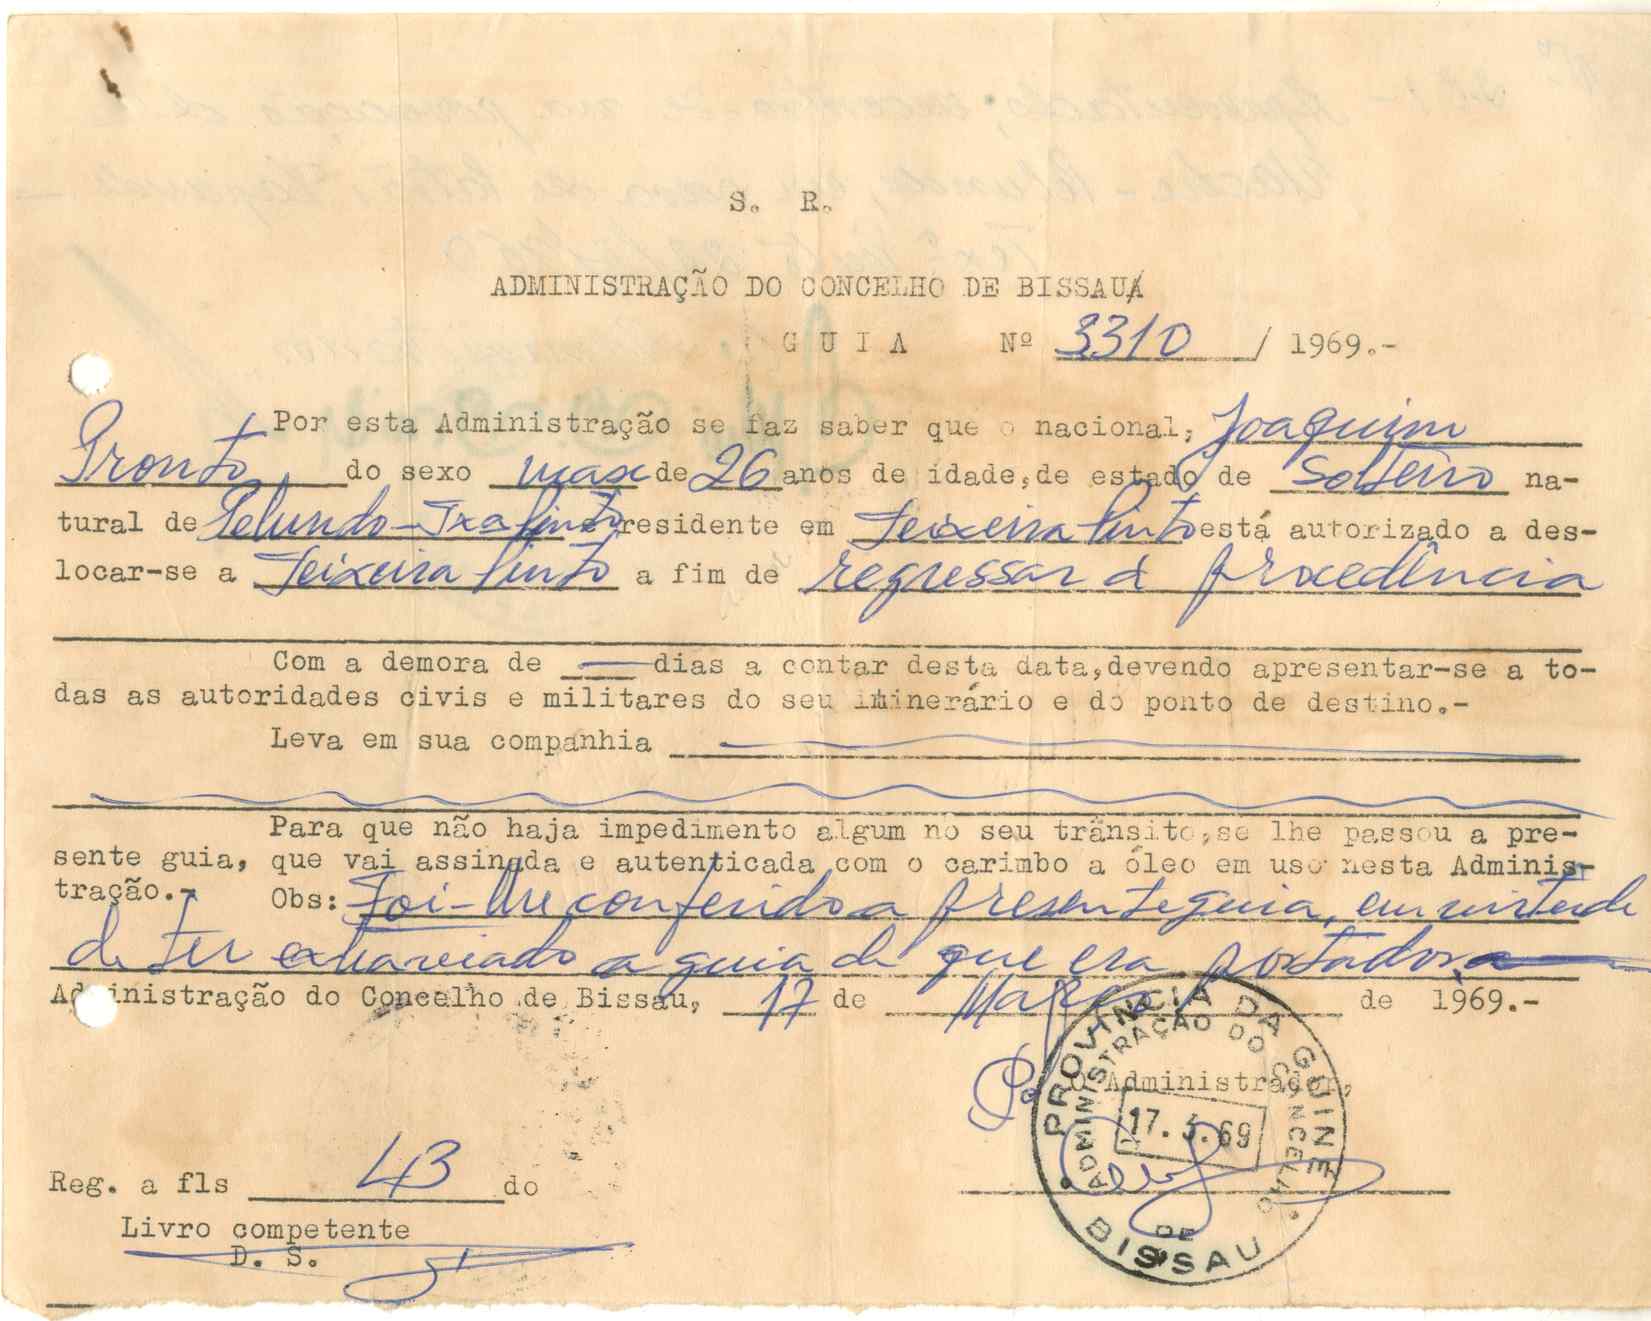 S. R.
ADMINISTRAÇÃO DO CONCELHO DE BISSAU
GUIA Nº 3310 / 1969.-
Por esta Administração se faz saber que o nacional, Joaquim
Pronto do sexo masc de 26 anos de idade, de estado de Solteiro na-
tural de Pelundo-Txa Pinto residente em Teixeira Pinto está autorizado a des-
locar-se a Teixeira Pinto a fim de regressar à procedência
Com a demora de — dias a contar desta data, devendo apresentar-se a to-
das as autoridades civis e militares do seu itinerário e do ponto de destino.-
Leva em sua companhia
Para que não haja impedimento algum no seu trânsito, se lhe passou a pre-
sente guia, que vai assinada e autenticada com o carimbo a óleo em uso nesta Adminis-
tração.- Obs: Foi-lhe conferido a presente guia, em virtude
de ter extraviado a guia de que era portador.
Administração do Concelho de Bissau, 17 de Março de 1969.-
O Administrador,
PROVÍNCIA DA GUINÉ
ADMINISTRAÇÃO DO CONCELHO
17. 3. 69
DE
BISSAU
Reg. a fls 43 do
Livro competente
D. S.